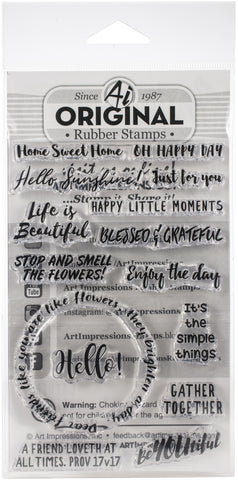 Since Ai 1987
ORIGINAL
Rubber Stamps
Home Sweet Home OH HAPPY DAY
Hello, Sunshine! Just for you
Stamp it Share it!
Life is
Beautiful
HAPPY LITTLE MOMENTS
BLESSED & GRATEFUL
STOP AND SMELL
THE FLOWERS!
Enjoy the day
Art Impressions
Instagram @ArtImpressions
Art Impressions
Dear friends like you are like flowers - they brighten a day
Hello!
It's
the
simple
things
Warning: Choking hazard
© Art Impressions, Inc • feedback@artimpressions
GATHER
TOGETHER
A FRIEND LOVETH AT
ALL TIMES. PROV 17v17
beYOUtiful